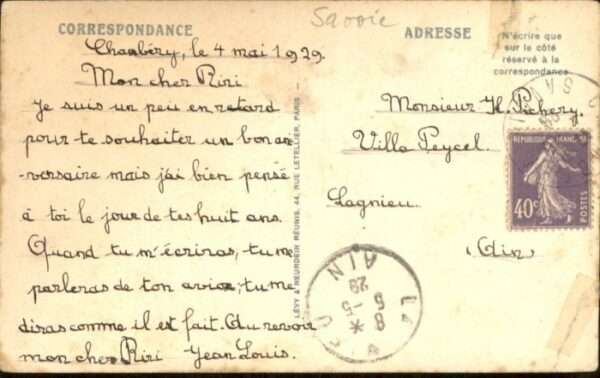 Savoie
CORRESPONDANCE
Chambéry, le 4 mai 1929.
Mon cher Riri
Je suis un peu en retard
pour te souhaiter un bon an-
versaire mais j'ai bien pensé
à toi le jour de tes huit ans.
Quand tu m'écriras, tu me
parleras de ton avion, tu me
diras comme il est fait. Au revoir
mon cher Riri Jean Louis.
LÉVY & NEURDEIN RÉUNIS, 44, RUE LETELLIER, PARIS
ADRESSE
N'écrire que
sur le côté
réservé à la
correspondance
Monsieur H. Pichery
Villa Peycel.
Lagnieu
Ain
REPUBLIQUE FRANC SE
40c
POSTES
AIN
8 * -5
5 29